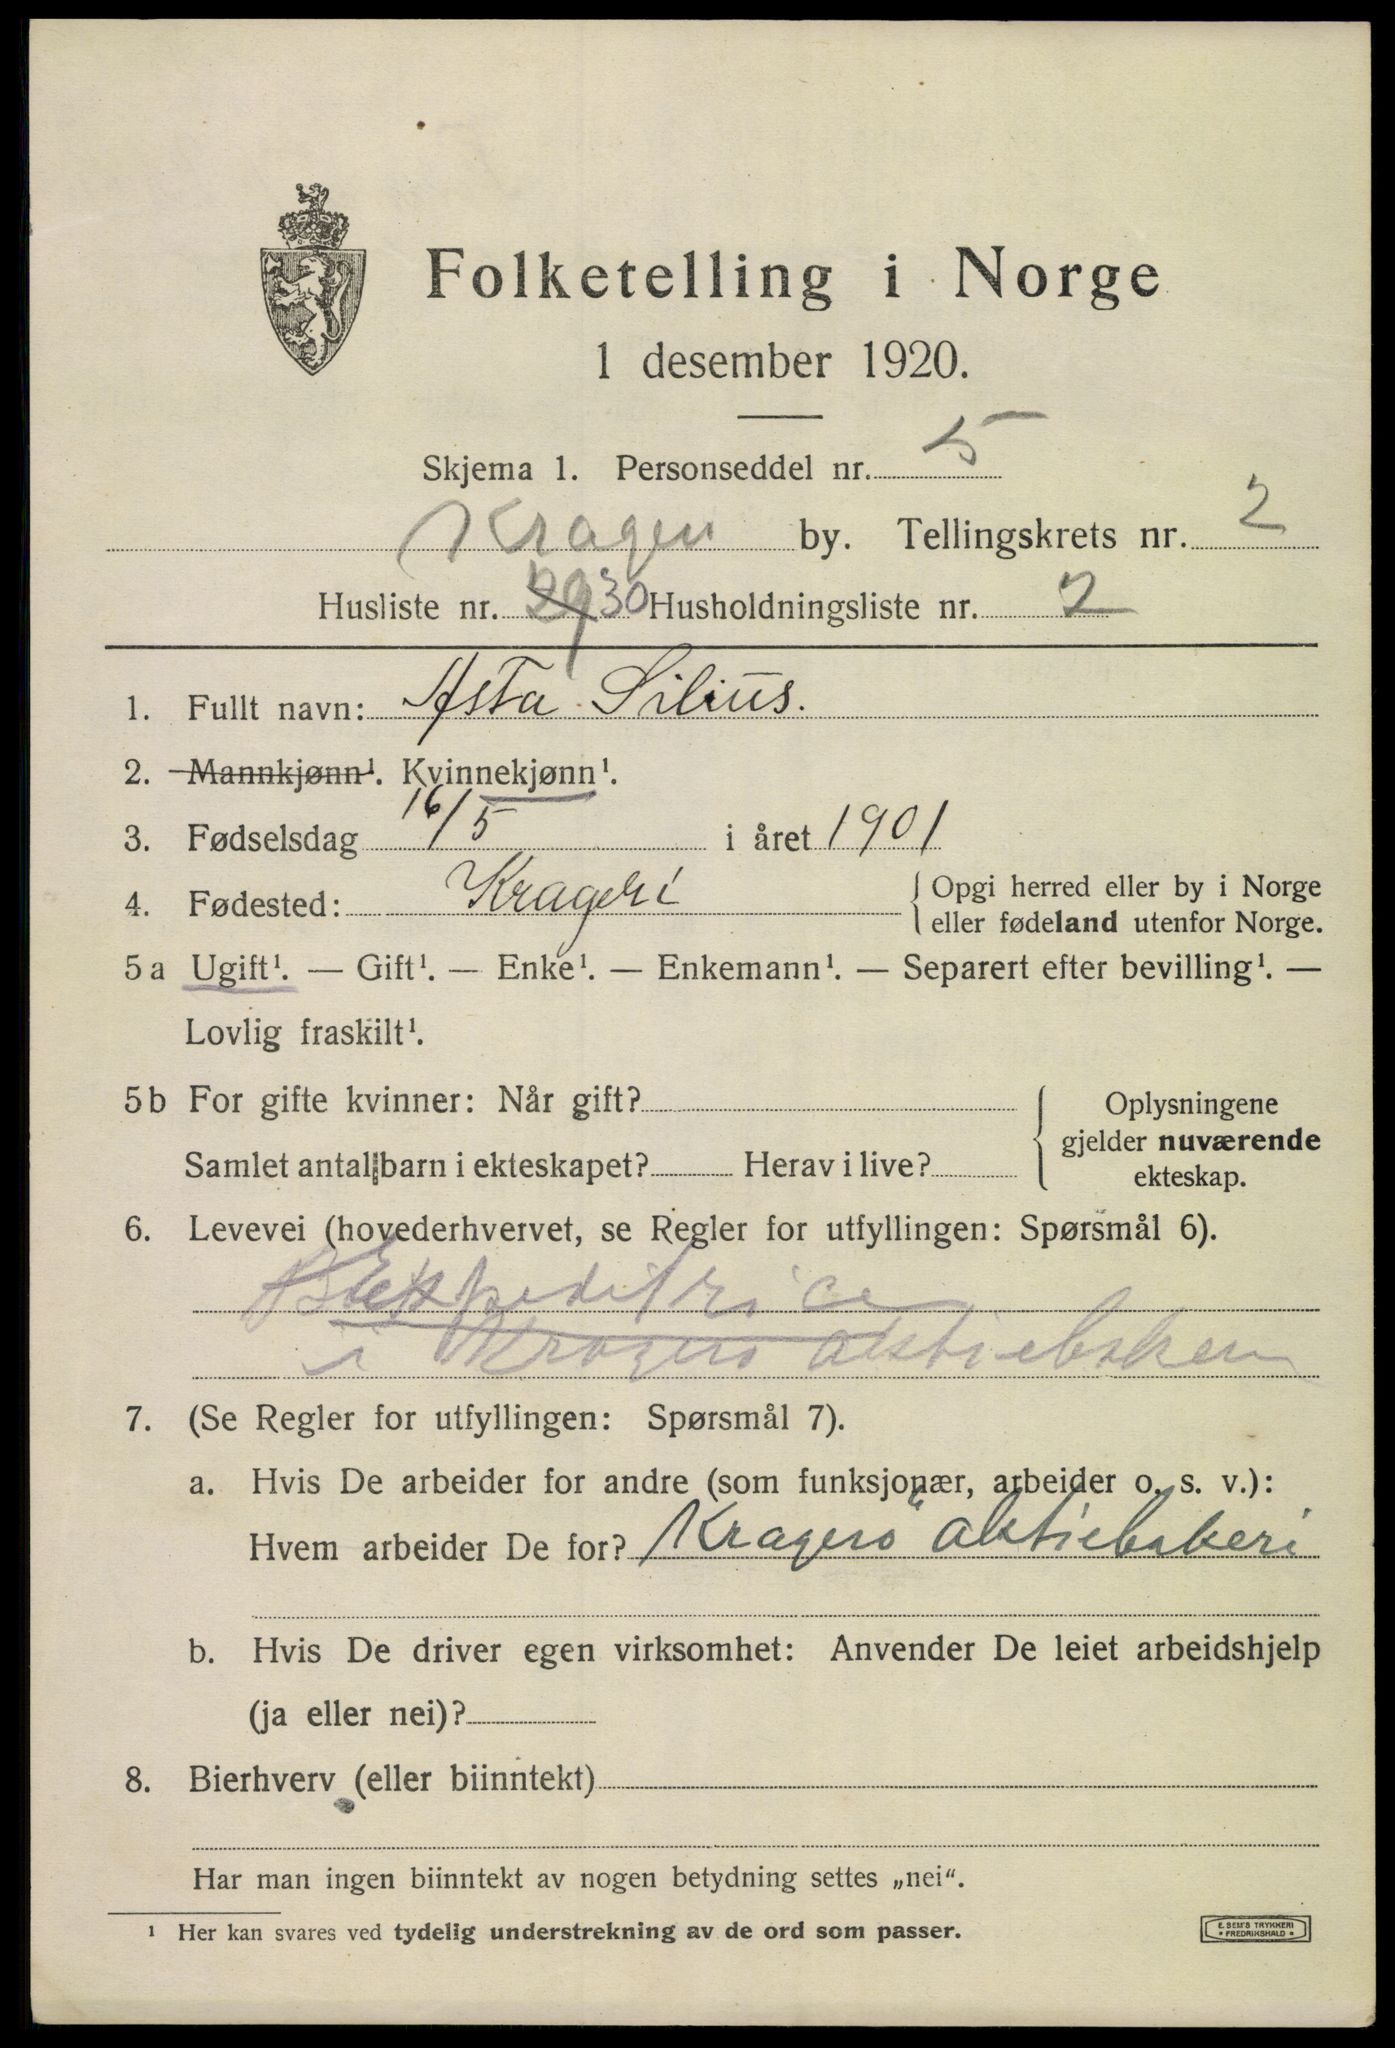 Folketelling i Norge
1 desember 1920.
Skjema 1. Personseddel nr. 5
Kragerø by. Tellingskrets nr. 2
Husliste nr. 29 30 Husholdningsliste nr. 2
1. Fullt navn: Asta Silius.
2. Mannkjønn¹. Kvinnekjønn¹.
3. Fødselsdag 16/5 i året 1901
4. Fødested: Kragerö { Opgi herred eller by i Norge
eller fødeland utenfor Norge.
5 a Ugift¹. — Gift¹. — Enke¹. — Enkemann¹. — Separert efter bevilling¹. —
Lovlig fraskilt¹.
5 b For gifte kvinner: Når gift? { Oplysningene
gjelder nuværende
Samlet antal barn i ekteskapet? Herav i live? ekteskap.
6. Levevei (hovederhvervet, se Regler for utfyllingen: Spørsmål 6).
Expeditrice
i Kragerø aktiebakeri
7. (Se Regler for utfyllingen: Spørsmål 7).
a. Hvis De arbeider for andre (som funksjonær, arbeider o. s. v.):
Hvem arbeider De for? Kragerö aktiebakeri
b. Hvis De driver egen virksomhet: Anvender De leiet arbeidshjelp
(ja eller nei)?
8. Bierhverv (eller biinntekt)
Har man ingen biinntekt av nogen betydning settes „nei“.
¹ Her kan svares ved tydelig understrekning av de ord som passer.
E. SEM'S TRYKKERI
• FREDRIKSHALD •